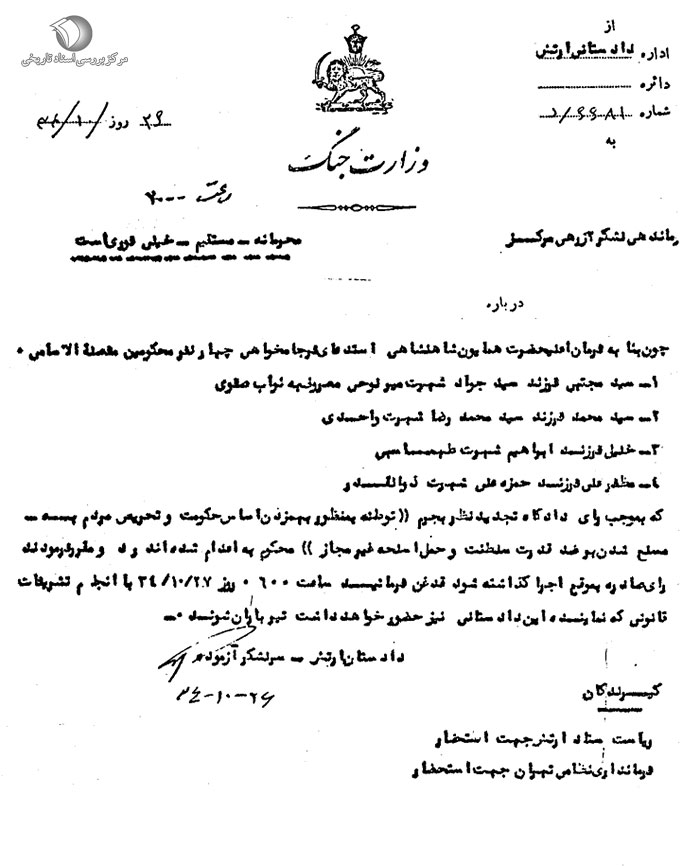 مرکز بررسی اسناد تاریخی
از
اداره دادستانی ارتش
دائره
شماره
به
روز
وزارت جنگ
ساعت ۲۰۰۰
رماندهی لشکر ۲ زرهی مرکز
محرمانه ــ مستقیم ــ خیلی فوری است
درباره
چون بنا به فرمان اعلیحضرت همایون شاهنشاهی استدعای فرجامخواهی چهار نفر محکومین مفصلة الاسامی ۰
۱ــ سید مجتبی فرزند سید جواد شهرت میرلوحی معروف به نواب صفوی
۲ــ سید محمد فرزند سید محمد رضا شهرت واحدی
۳ــ خلیل فرزند ابراهیم شهرت طهماسبی
۴ــ مظفر علی فرزند حمزه علی شهرت ذوالقدر
که بموجب رای دادگاه تجدید نظر بجرم (( توطئه بمنظور بهمزدن اساس حکومت و تحریص مردم به ــ
مسلح شدن بر ضد قدرت سلطنت و حمل اسلحه غیر مجاز )) محکوم به اعدام شده اند رد و مقرر فرمودند
رای صادره بموقع اجرا گذاشته شود قدغن فرمائید ساعت ۰۶۰۰ روز ۳۴/۱۰/۲۷ با انجام تشریفات
قانونی که نماینده این دادستانی نیز حضور خواهد داشت تیر باران شوند ۰ــ
دادستان ارتش ــ سرلشکر آزموده
۳۴-۱۰-۲۶
گیرندگان
ریاست ستاد ارتش جهت استحضار
فرمانداری نظامی تهران جهت استحضار